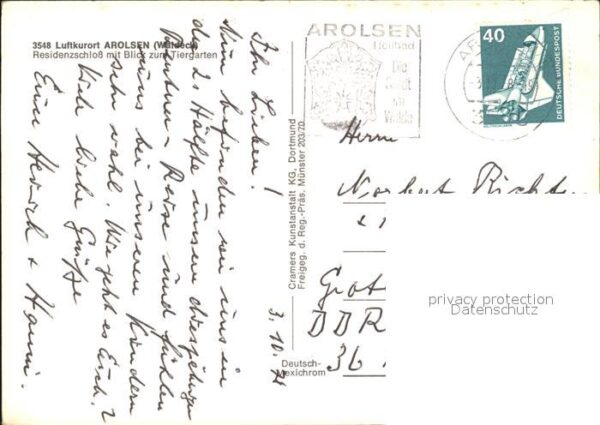 3548 Luftkurort AROLSEN (Waldeck)
Residenzschloß mit Blick zum Tiergarten
Ihr Lieben!
Nun befinden wir uns in
der 2. Hälfte unserer diesjährigen
Rentner-Reise und fühlen
uns bei unseren Kindern
sehr wohl. Wie geht es Euch?
Viele liebe Grüße
Eure Heinrich + Hanni.
3.10.
Cramers Kunstanstalt KG, Dortmund
Freigeg. d. Reg.-Präs. Münster 203/70
Deutsch-
lexichrom
AROLSEN
Heilbad
Die
Stadt
im
Walde
40
DEUTSCHE BUNDESPOST
Herrn
Norbert Richt
Grot
DDR
36
privacy protection
Datenschutz